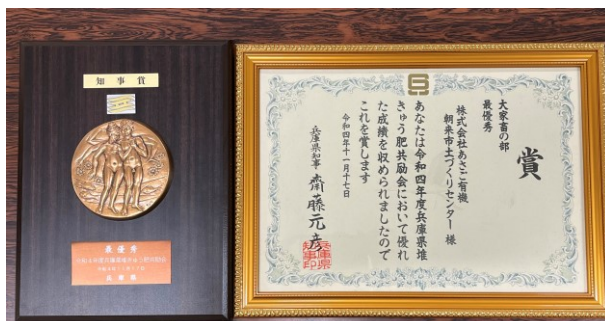 知事賞
最優秀
兵庫県
賞
大家畜の部
最優秀
株式会社あさご有機
朝来市土づくりセンター 様
あなたは令和四年度兵庫県堆
きゅう肥共励会において優れ
た成績を収められましたので
これを賞します
令和四年十一月十七日
兵庫県知事 齋藤元彦
兵庫県
知事印